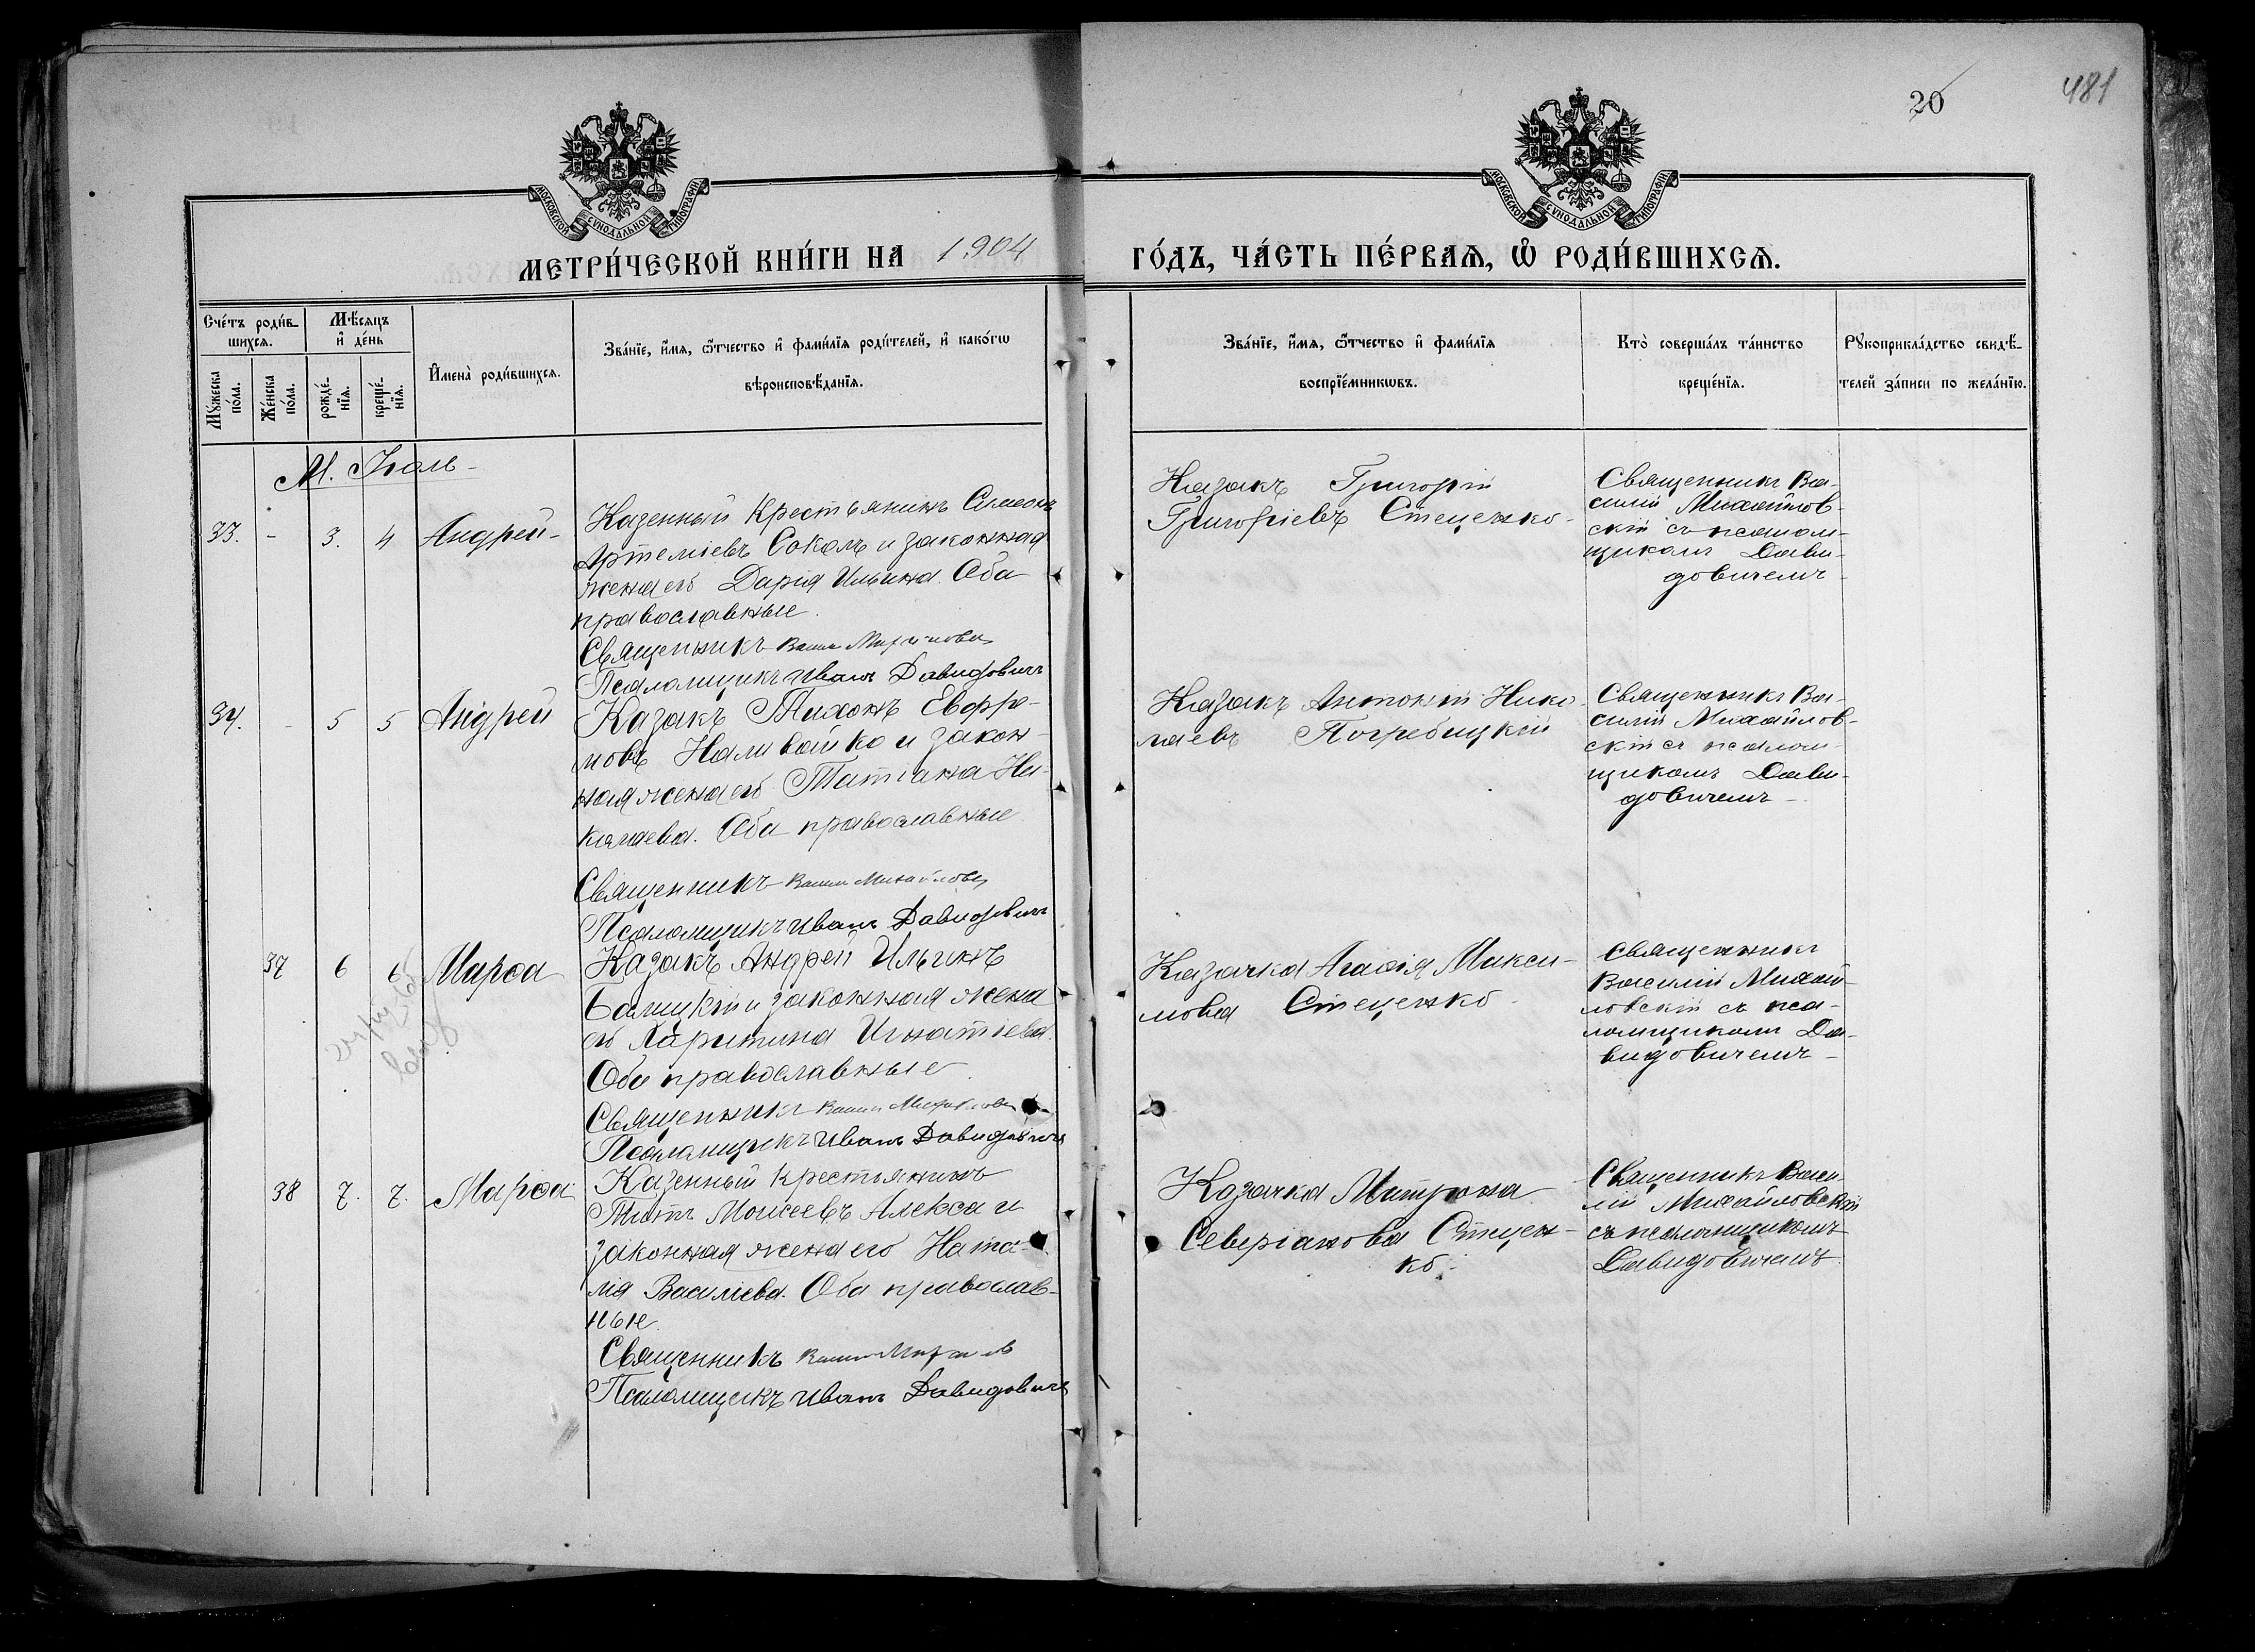 20
481
МОСКОВСКОЙ СУНОДАЛЬНОЙ ТИПОГРАФІИ
МОСКОВСКОЙ СУНОДАЛЬНОЙ ТИПОГРАФІИ
МЕТРИ́ЧЕСКОЙ КНИ́ГИ НА 1904
ГО́ДЪ, ЧА́СТЬ ПЕ́РВАѦ, Ѽ РОДИ́ВШИХСѦ.
Сче́тъ роди́в-
шихсѧ.
Мꙋ́жеска
по́ла.
Же́нска
по́ла.
Мѣ́сѧцъ
и҆ де́нь
рожде́-
нїѧ.
креще́-
нїѧ.
И҆мена̀ роди́вшихсѧ.
Зва́нїе, и҆́мѧ, ѻ҆́тчество и҆ фами́лїѧ роди́телей, и҆ како́гѡ
вѣроисповѣ́данїѧ.
Зва́нїе, и҆́мѧ, ѻ҆́тчество и҆ фами́лїѧ
воспрїе́мникѡвъ.
Кто̀ соверша́лъ та́инство
креще́нїѧ.
Рꙋкоприкла́дство свидѣ́-
телей за́писи по жела́нїю.
М. Іюль
33. - 3. 4 Андрей
Казенный крестьянинъ Симеонъ
Артеміевъ Соколъ и законная
жена его Дарія Ильина. Оба
православные.
Священникъ Васил Михайловск
Псаломщикъ Иванъ Давидовичъ
Казакъ Григорій
Григоріевъ Стеценко
Священникъ Ва-
силій Михайлов-
скій съ псалом-
щикомъ Дави-
довичемъ
34. - 5 5 Андрей
Казакъ Тихонъ Евфре-
мовъ Наливайко и закон-
ная жена его Татіана Ни-
колаева. Оба православные
Священникъ Васил Михайловск
Псаломщикъ Иванъ Давидовичъ
Казакъ Антоній Нико-
лаевъ Погребицкій
Священникъ Ва-
силій Михайлов-
скій съ псалом-
щикомъ Дави-
довичемъ
37 6 6 Марѳа
Казакъ Андрей Ильинъ
Балицкій и законная жена
его Харитина Игнатіева.
Оба православные
Священникъ Васил Михайловск
Псаломщикъ Иванъ Давидовичъ
Казачка Агафія Макси-
мова Стеценко
Священникъ
Василій Михай-
ловскій съ пса-
ломщикомъ Да-
видовичемъ
38 7. 7. Марѳа
Казенный крестьянинъ
Титъ Моисеевъ Алекса и
законная жена его Ната-
лія Василіева. Оба православ-
ные.
Священникъ Васил Михайлов
Псаломщикъ Иванъ Давидовичъ
Казачка Матрона
Северіанова Стецен-
ко
Священникъ Васи-
лій Михайловскій
съ псаломщикомъ
Давидовичемъ